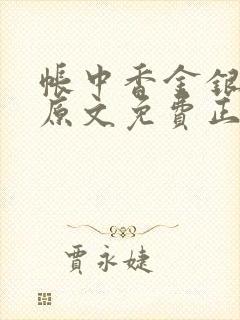 帳中香金銀
原文免費正
賈永婕